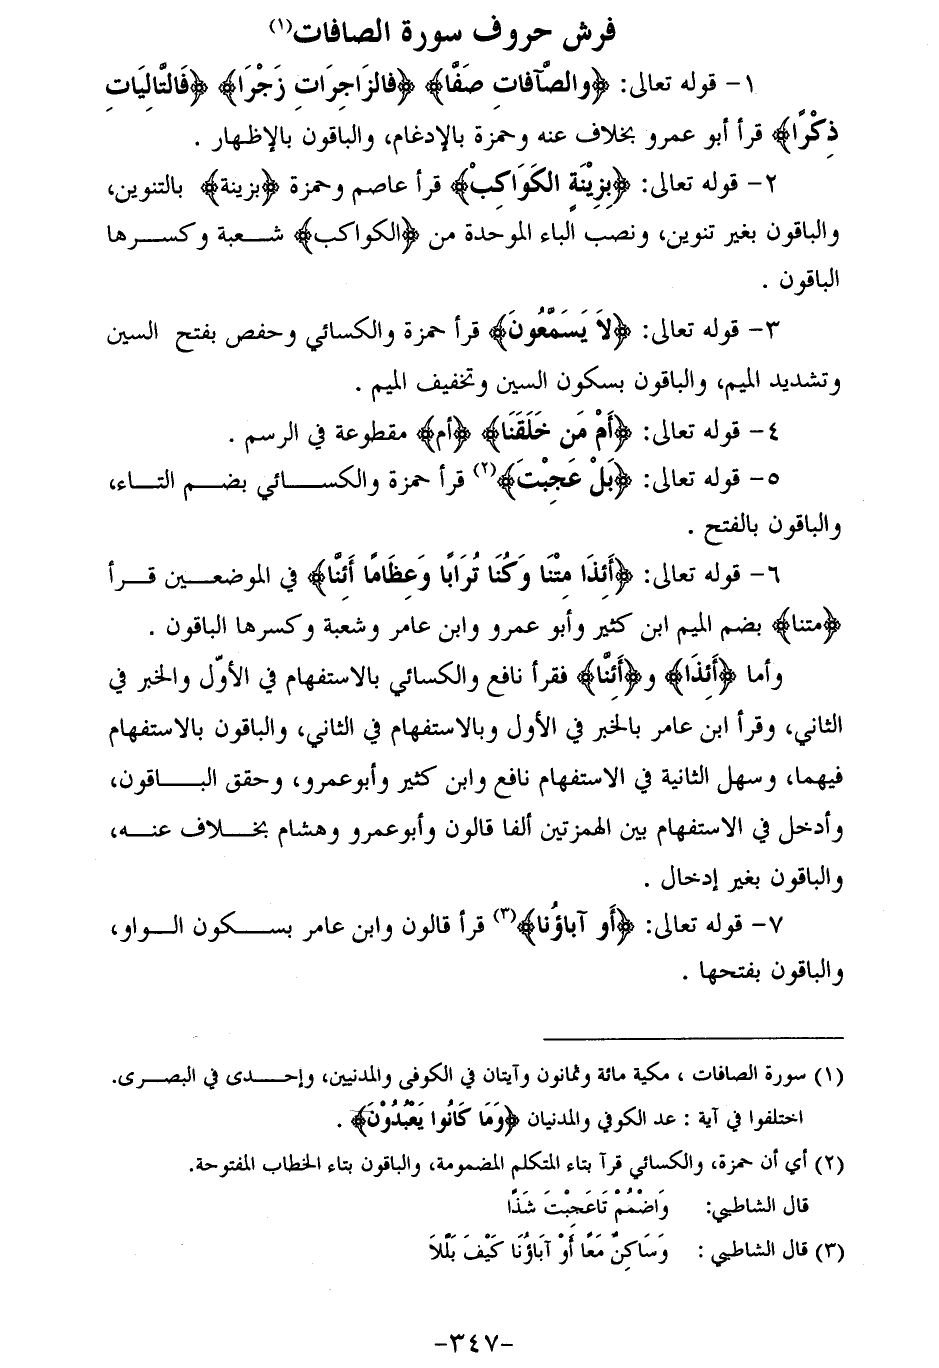 فرش حروف سورة الصافات(١)
١- قوله تعالى: ﴿والصَّآفاتِ صَفَّا﴾ ﴿فالزَاجِرَاتِ زَجْرَا﴾ ﴿فَالتَّاليَاتِ
ذِكْرًا﴾ قرأ أبو عمرو بخلاف عنه وحمزة بالإدغام، والباقون بالإظهار .
٢- قوله تعالى: ﴿بِزِيْنَةٍ الكَوَاكِبْ﴾ قرأ عاصم وحمزة ﴿بزينة﴾ بالتنوين،
والباقون بغير تنوين، ونصب الباء الموحدة من ﴿الكواكب﴾ شـعبة وكسـرها
الباقون .
٣- قوله تعالى: ﴿لاَ يَسَمَّعُونَ﴾ قرأ حمزة والكسائي وحفص بفتح السين
وتشديد الميم، والباقون بسكون السين وتخفيف الميم .
٤- قوله تعالى: ﴿أَمْ مَن خَلَقَنَا﴾ ﴿أم﴾ مقطوعة في الرسم .
٥- قوله تعالى: ﴿بَلْ عَجِبْتَ﴾(٢) قرأ حمزة والكسـائي بضـم التـاء،
والباقون بالفتح .
٦- قوله تعالى: ﴿أَئِذَا مِتْنَا وَكُنَا تُرَابًا وَعِظَامًا أَئِنَّا﴾ في الموضعـين قـرأ
﴿متنا﴾ بضم الميم ابن كثير وأبو عمرو وابن عامر وشعبة وكسرها الباقون .
وأما ﴿أَئِذَا﴾ و﴿أَئِنَّا﴾ فقرأ نافع والكسائي بالاستفهام في الأوّل والخبر في
الثاني، وقرأ ابن عامر بالخبر في الأول وبالاستفهام في الثاني، والباقون بالاستفهام
فيهما، وسهل الثانية في الاستفهام نافع وابن كثير وأبوعمرو، وحقق البـاقون،
وأدخل في الاستفهام بين الهمزتين ألفا قالون وأبوعمرو وهشام بخـلاف عنـه،
والباقون بغير إدخال .
٧- قوله تعالى: ﴿أَو آباؤُنا﴾(٣) قرأ قالون وابن عامر بسـكون الـواو،
والباقون بفتحها .
(١) سورة الصافات ، مكية مائة وثمانون وآيتان في الكوفى والمدنيين، وإحـدى في البصـرى.
اختلفوا في آية : عد الكوفي والمدنيان ﴿وَمَا كَانُوا يَعْبُدُوْنَ﴾ .
(٢) أي أن حمزة، والكسائي قرآ بتاء المتكلم المضمومة، والباقون بتاء الخطاب المفتوحة.
قال الشاطبي: وَاضْمُمْ تَاعَجِبْتَ شَذًا
(٣) قال الشاطبي : وَسَاكِنٌ مَعًا أَوْ آبَاؤُنَا كَيْفَ بَلَّلاَ
-٣٤٧-